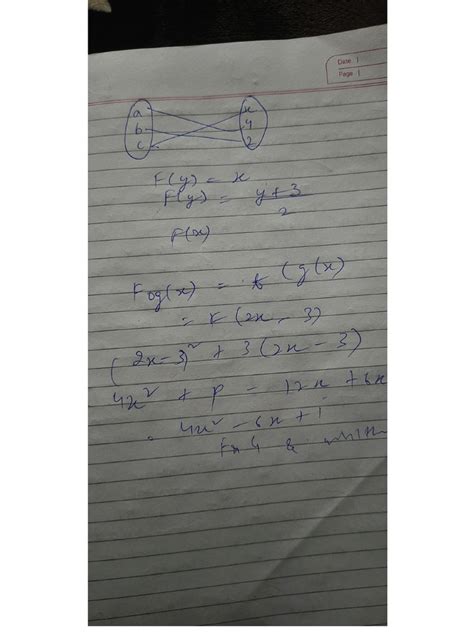 Date 1
Page 1
a x
b y
c z
F(y) = x
F(y) = y+3/2
F(x)
Fog(x) = (g(x)
= F(2x - 3)
(2x-3)² + 3(2x-3)
4x² + 9 - 12x + 6x
= 4x² - 6x + 1
&